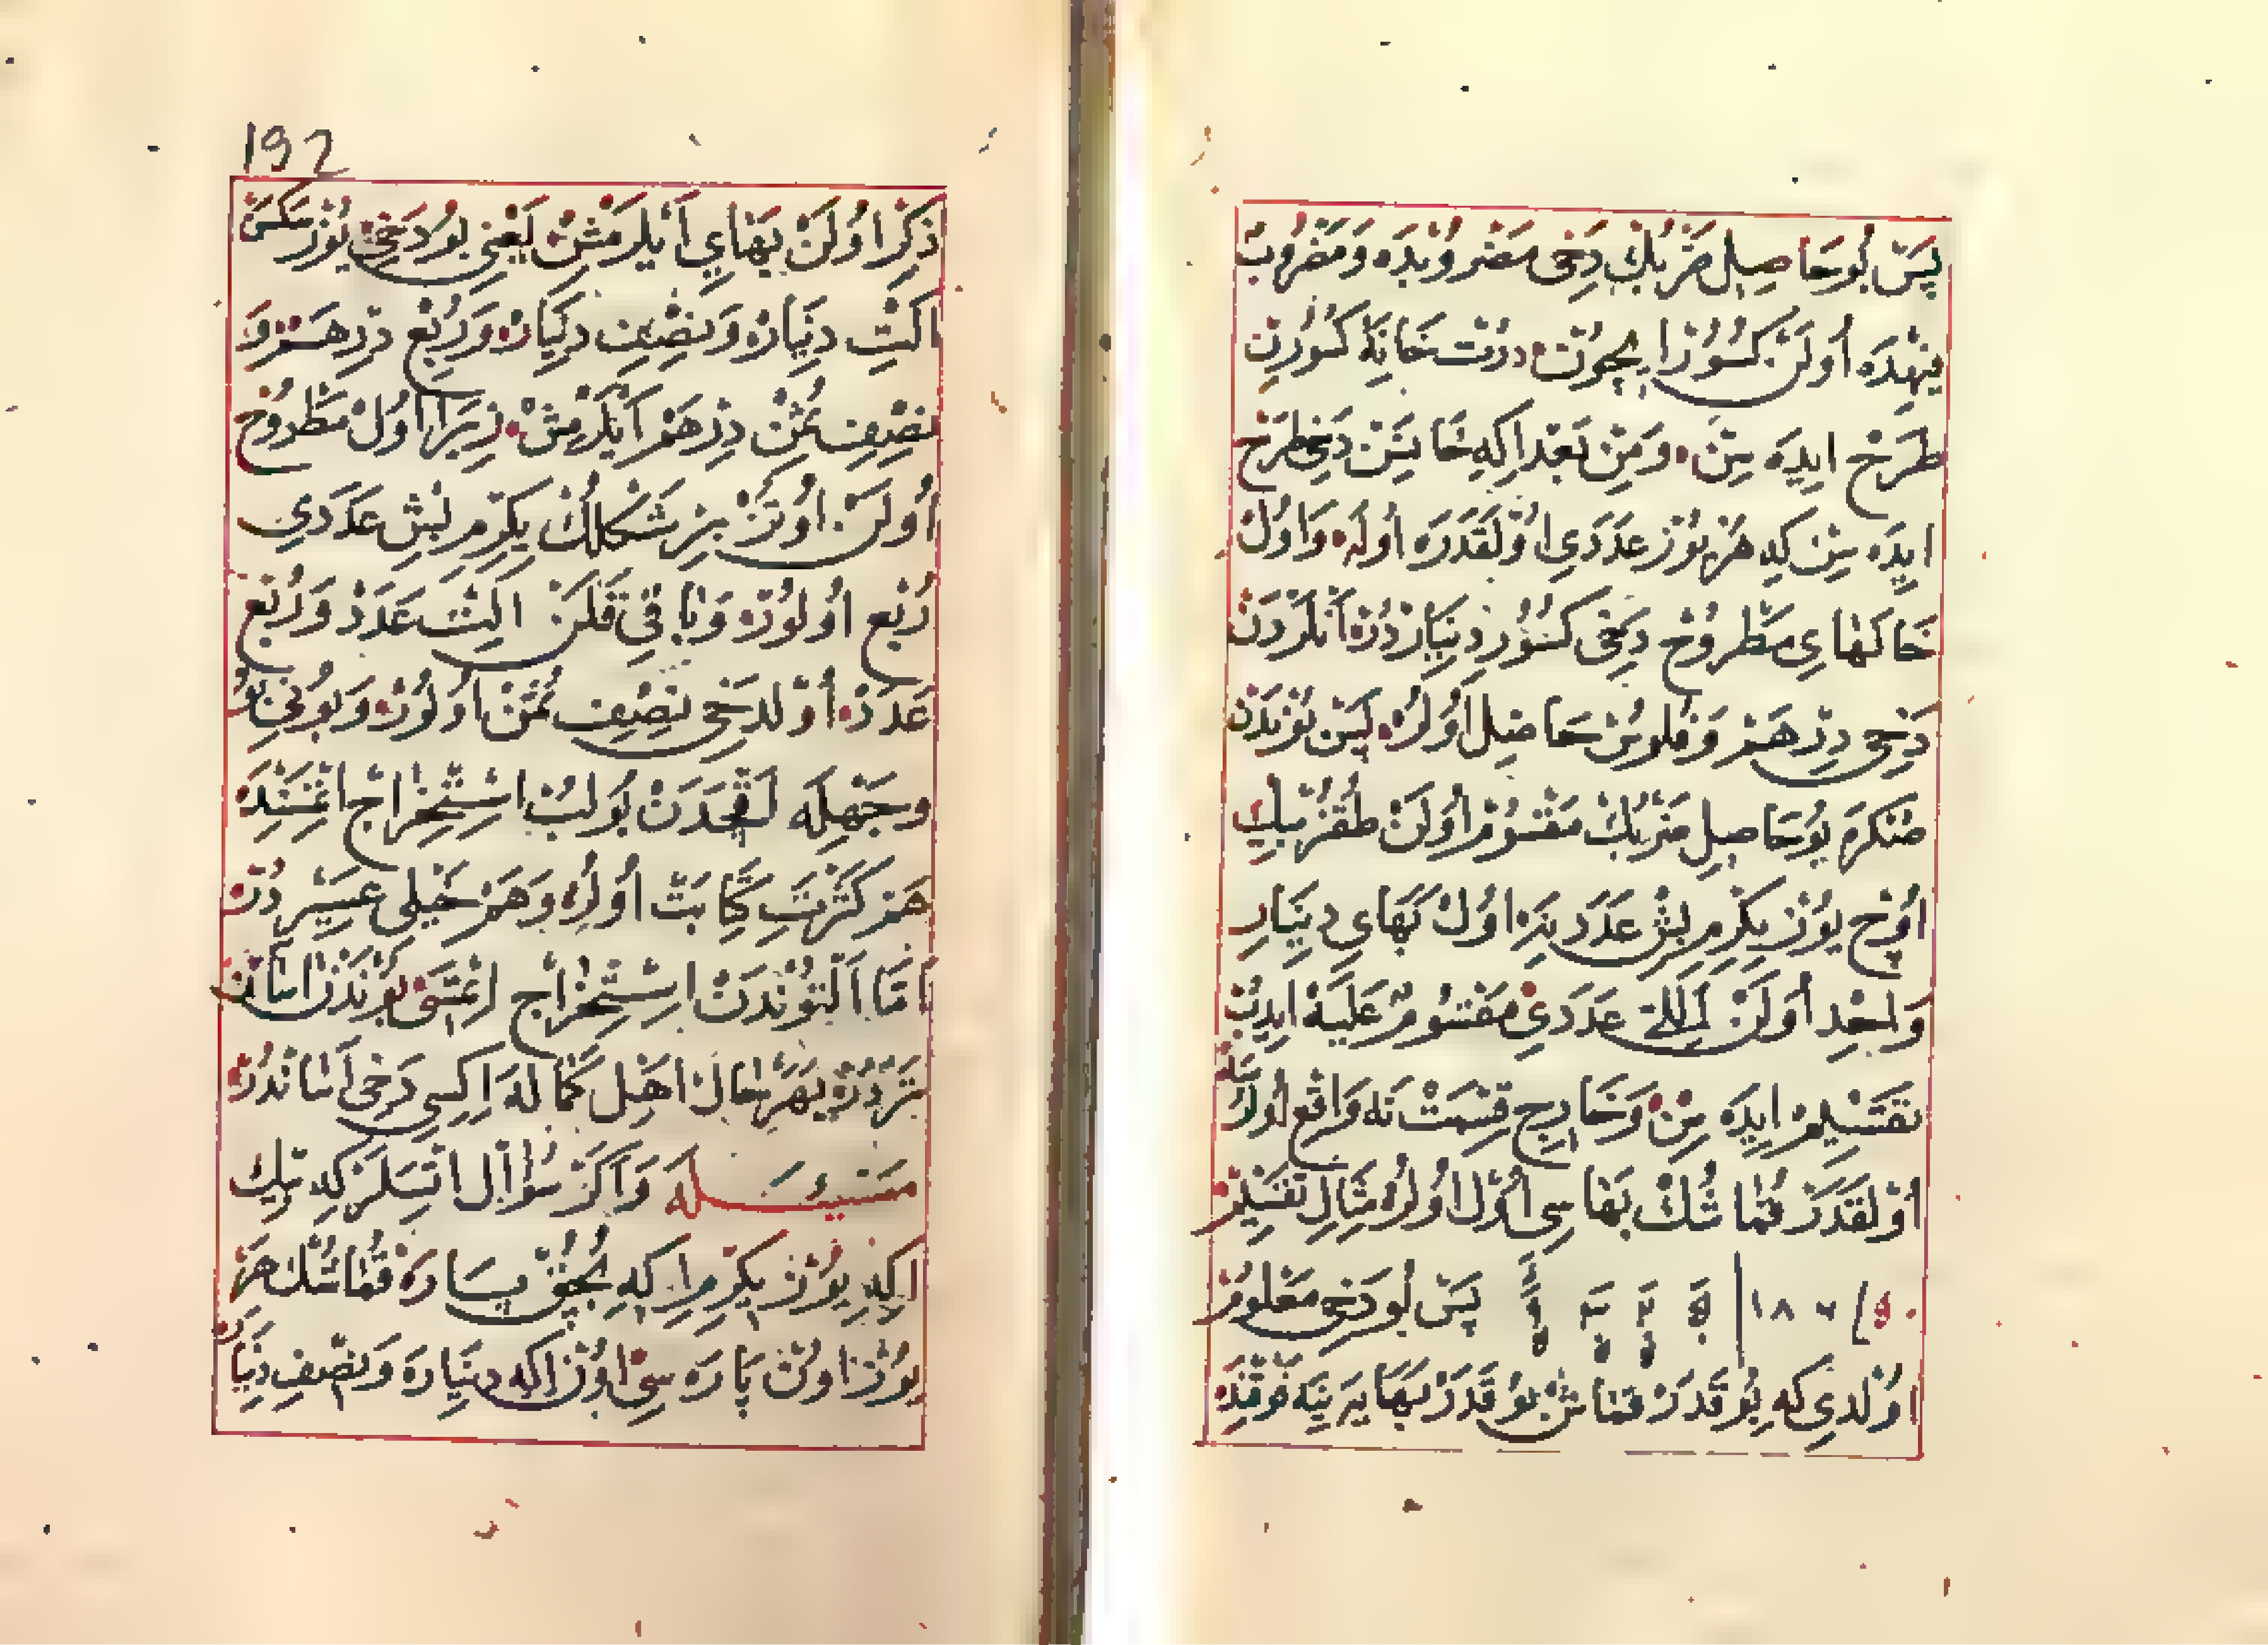 پس بو حاصل ضربك دخی مضروبده و مضروب
فیهده اولن كسور ایچون درت خانه كسوردن
طرح ایده سن و من بعد ایكه خانه سن دخی طرح
ایده سن كه هر یوز عددی اولقدره اوله و اول
خانهای مطروح دخی كسور دیناردن آنلردن
دخی درهم و فلوس حاصل اولور پس بوندن
صنكره بو حاصل ضربك مقسوم اولن طقز بیك
اوچ یوز یكرم بش عدد یره اول بهای دینار
واحد اولن اللی عددی مقسوم علیه ایدب
تقسیم ایده سن و خارج قسمت نه واقع اولورسه
اولقدر قماشك بهاسی اول اولور مثال تقسیم
پس بو دخی معلوم
اولدی كه بو قدر قماش بو قدر بهایرینه فوقنده
192
ذكر اولن بهای ایلرمش یعنی بو دخی یوز سكسن
التی دینار و نصف دینار و ربع درهم و
نصف ثمن درهم ایلرمش زیرا اول مطروح
اولن اوتن بر شكلك یكرم بش عددی
ربع اولور و باقی قلن التی عدد و ربع
عدد اولدخی نصف ثمن اولور و بونی بو
وجهله لقچدن بولب استخراج اتسنده
هم كثرت كتابت اولور و هم خیلی عسیر در
اما التوندن استخراج اتمسی بوندن اساندر
بهر حال اهل كماله ایكسی دخی اساندر
مسئله و اكر سؤال اتسلر كه بیك
ایكه یوز یكرم ایكه بچق پاره قماشك هر
یوز اون پاره سی اون ایكه دیناره و نصف دیناره